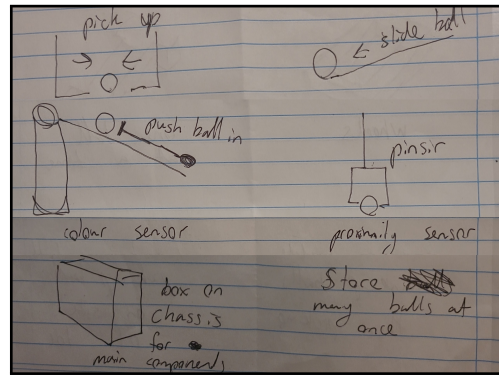 pick up
← slide ball
push ball in
pinsir
colour sensor
proximily sensor
box on
chassis
for
main components
Store
many balls at
once